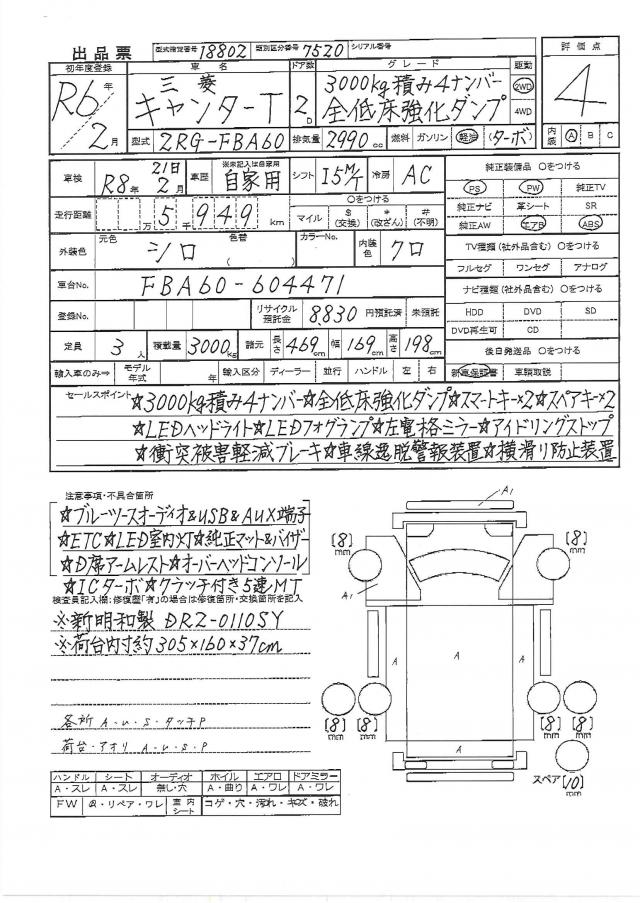 出品票 型式指定番号 18802 類別区分番号 7520 シリアル番号
初年度登録 車名 ドア数 グレード 駆動 評価点
R6年 三菱 3000kg積み4ナンバー 2WD
2月 キャンターT 2D 全低床強化ダンプ 4WD 4
型式 2RG-FBA60 排気量 2990cc 燃料 ガソリン 軽油 (ターボ) 内装 A B C
車検 R8年 21日 2月 車歴 ※未記入は自家用 自家用 シフト I5M/T 冷房 AC 純正装備品 ○をつける
PS PW 純正TV
走行距離 万 5千 949 km ○をつける マイル $(交換) *(改ざん) #(不明) 純正ナビ 革シート SR
純正AW エアB ABS
外装色 元色 シロ 色替 ( ) カラーNo. 内装色 クロ TV種類(社外品含む) ○をつける
フルセグ ワンセグ アナログ
車台No. FBA60-604471 ナビ種類(社外品含む) ○をつける
登録No. リサイクル預託金 8,830 円預託済 未預託 HDD DVD SD
DVD再生可 CD
定員 3人 積載量 3000kg 諸元 長さ 469cm 幅 169cm 高さ 198cm 後日発送品 ○をつける
輸入車のみ⇒ モデル年式 年 輸入区分 ディーラー 並行 ハンドル 左 右 新車保証書 車輌取説
セールスポイント
☆3000kg積み4ナンバー☆全低床強化ダンプ☆スマートキー×2☆スペアキー×2
☆LEDヘッドライト☆LEDフォグランプ☆左電格ミラー☆アイドリングストップ
☆衝突被害軽減ブレーキ☆車線逸脱警報装置☆横滑り防止装置
注意事項・不具合箇所
☆ブルーツースオーディオ&USB&AUX端子
☆ETC☆LED室内灯☆純正マット&バイザー
☆D席アームレスト☆オーバーヘッドコンソール
☆ICターボ☆クラッチ付き5速MT
検査員記入欄:修復歴「有」の場合は修復箇所・交換箇所を記入
※新明和製 DR2-0110SY
※荷台内寸約305×160×37cm
各所 A・U・S・タッチP
荷台・アオリ A・U・S・P
ハンドル シート オーディオ ホイル エアロ ドアミラー
A・スレ A・スレ 無し・穴 A・曲り A・ワレ A・ワレ
FW Q・リペア・ワレ 室内シート コゲ・穴・汚れ・キズ・破れ
A1
[8]mm [8]mm
A1
A A A
[8]mm [8]mm [8]mm [8]mm
A
スペア [10]mm